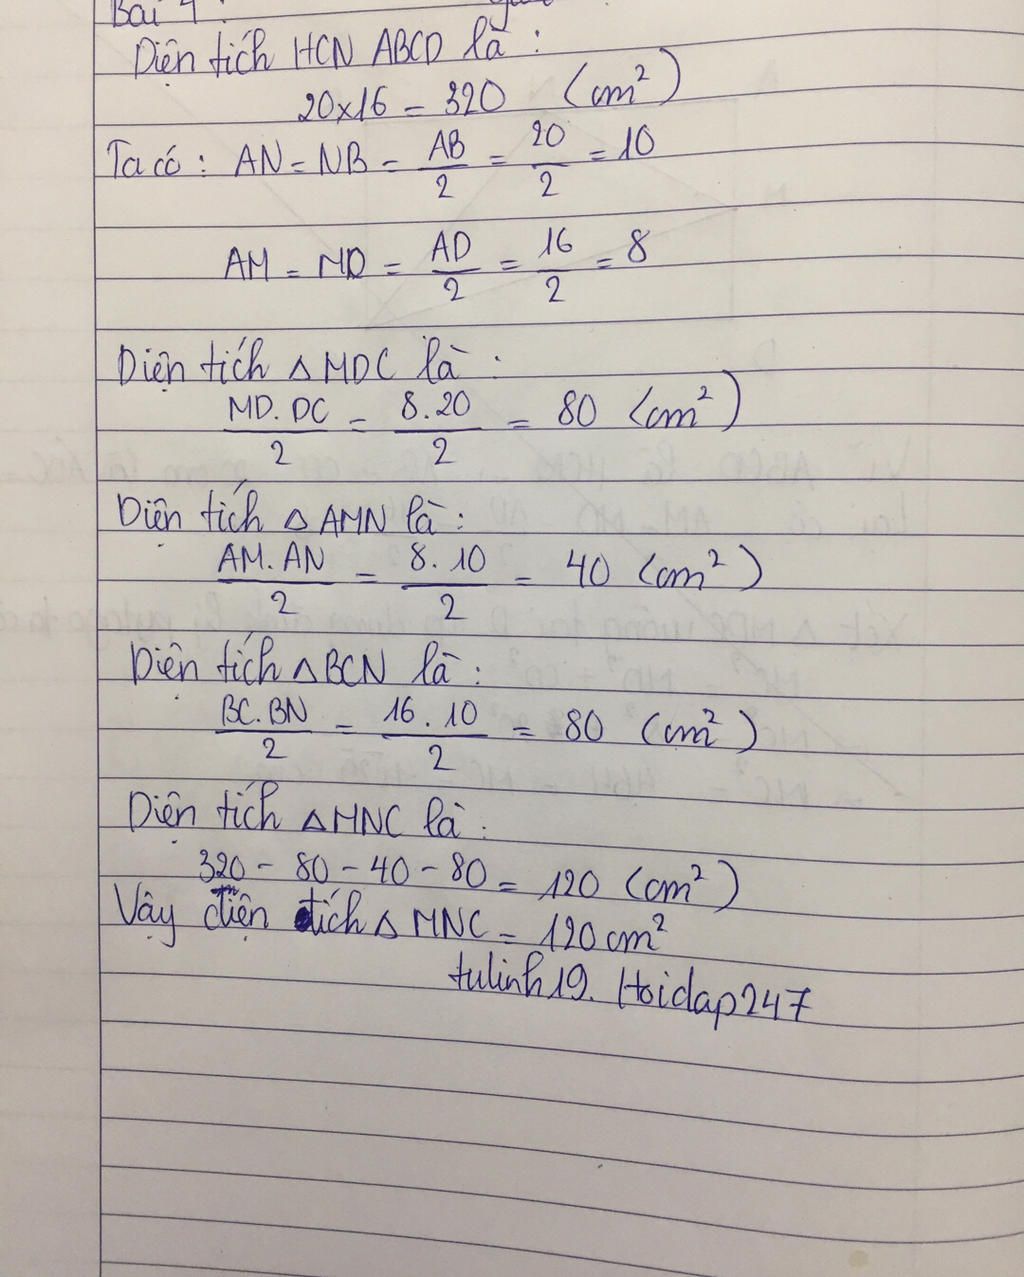 Bài 4:
Diện tích HCN ABCD là :
20x16 = 320 (cm²)
Ta có : AN = NB = AB/2 = 20/2 = 10
AM = MD = AD/2 = 16/2 = 8
Diện tích △ MDC là :
MD.DC/2 = 8.20/2 = 80 (cm²)
Diện tích △ AMN là :
AM.AN/2 = 8.10/2 = 40 (cm²)
Diện tích △BCN là :
BC.BN/2 = 16.10/2 = 80 (cm²)
Diện tích △MNC là :
320 - 80 - 40 - 80 = 120 (cm²)
Vậy diện tích △ MNC = 120 cm²
tulinh19. Hoidap247